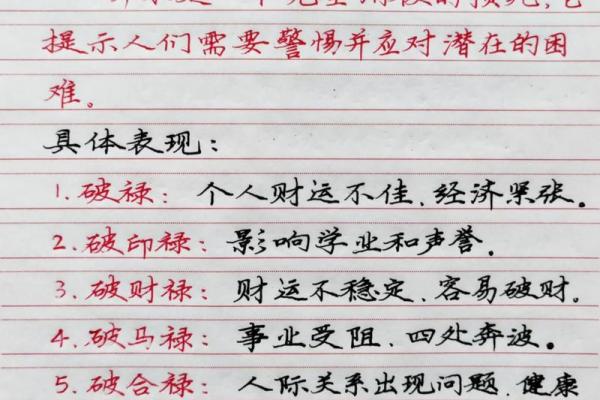 提示人们需要警惕并应对潜在的困
难。
具体表现：
1.破禄：个人财运不佳、经济紧张。
2.破印禄：影响学业和声誉。
3.破财禄：财运不稳定、容易破财。
4.破马禄：事业受阻、四处奔波。
5.破合禄：人际关系出现问题、健康